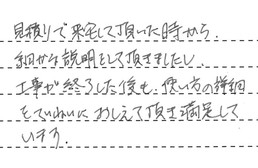 見積りで来宅して頂いた時から、
細かな説明をして頂きましたし、
工事が終了した後も、使い方の詳細
をていねいにおしえて頂き満足して
います。